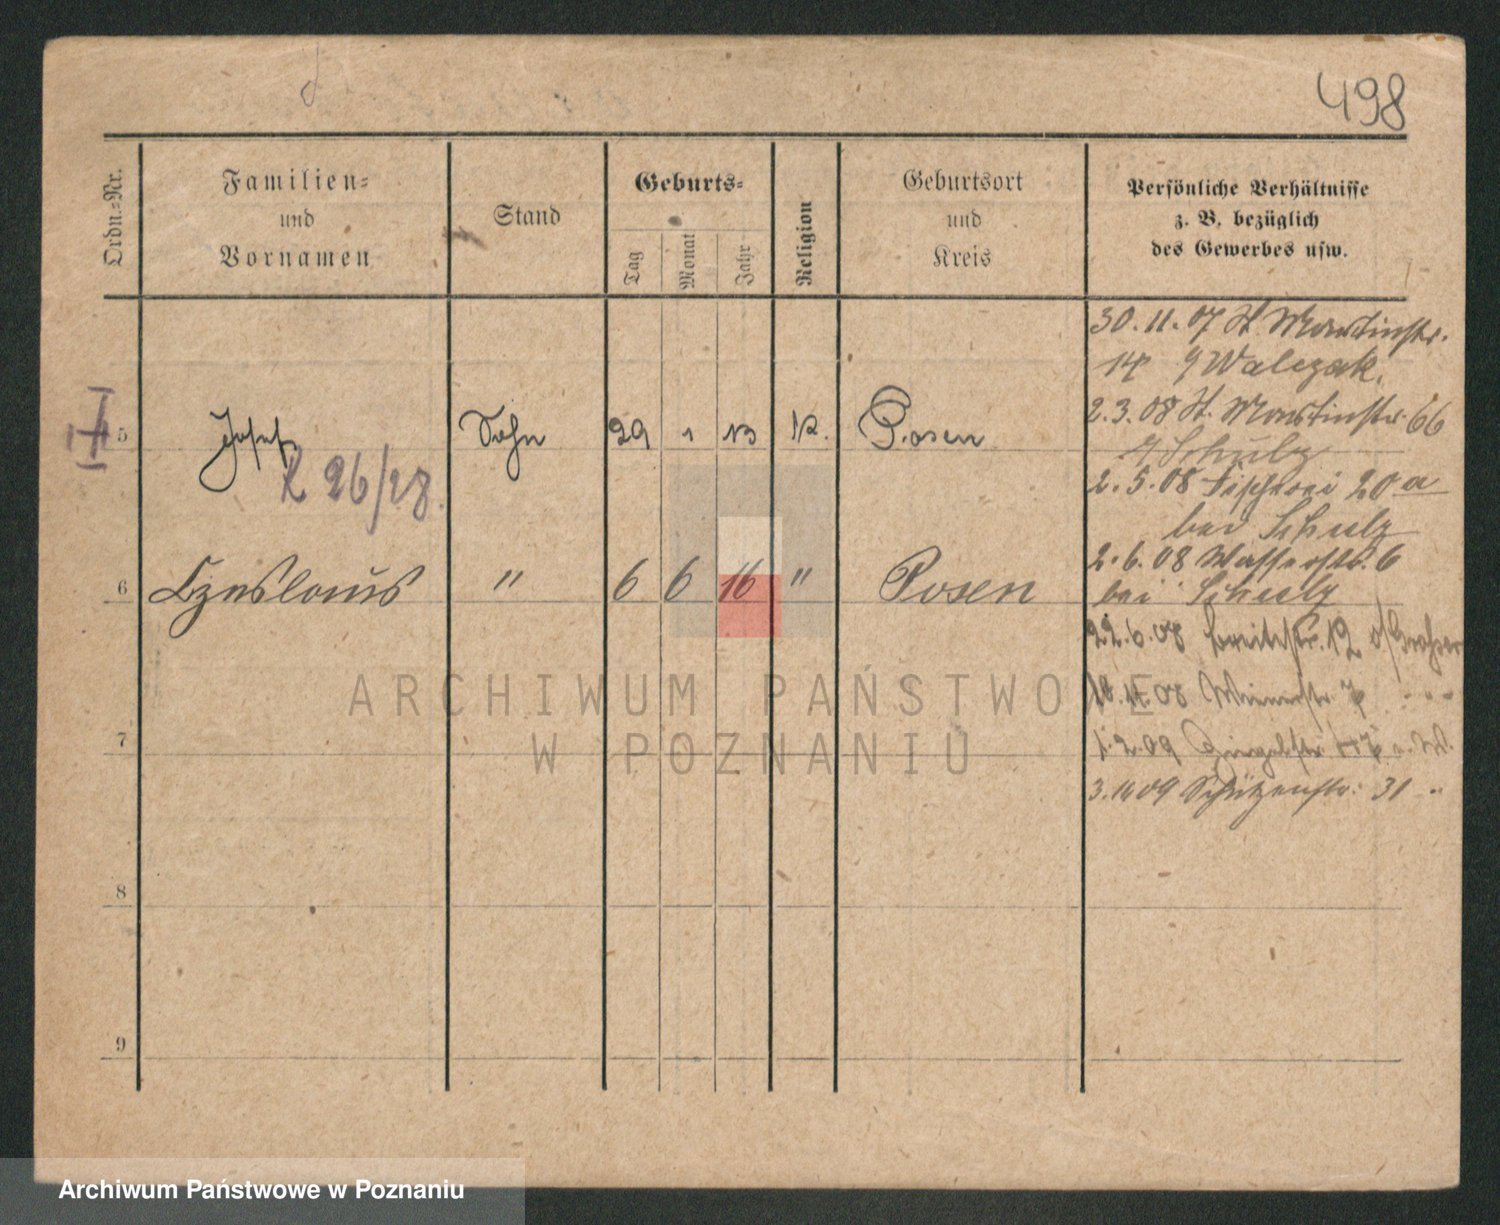 498
Ordn.-Nr.
Familien-
und
Vornamen
Stand
Geburts-
Tag
Monat
Jahr
Religion
Geburtsort
und
Kreis
Persönliche Verhältnisse
z. B. bezüglich
des Gewerbes usw.
30.11.07 St. Martinstr.
14 Walczak.
2.3.08 St. Martinstr. 66
Schulz
5 Josef Sohn 29 1 13 K. Posen
K 26/28.
2.5.08 Fischerei 20 a
bei Schulz
2.6.08 Wasserstr. 6
bei Schulz
6 Czeslaus " 6 6 16 " Posen
22.6.08 Breitestr. 12
08 7
7
1.2.09
3. 09 Schützenstr. 31 "
8
9
ARCHIWUM PAŃSTWOWE
W POZNANIU
Archiwum Państwowe w Poznaniu